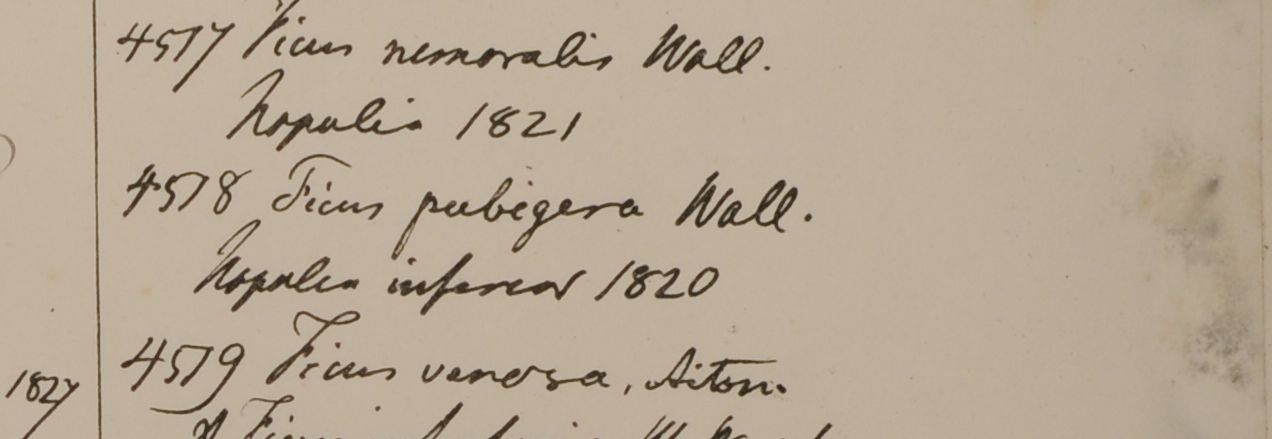 4517 Ficus nemoralis Wall.
Napalia 1821
4518 Ficus pubigera Wall.
Napalia inferior 1820
1827
4519 Ficus venosa, Aiton.
Ficus